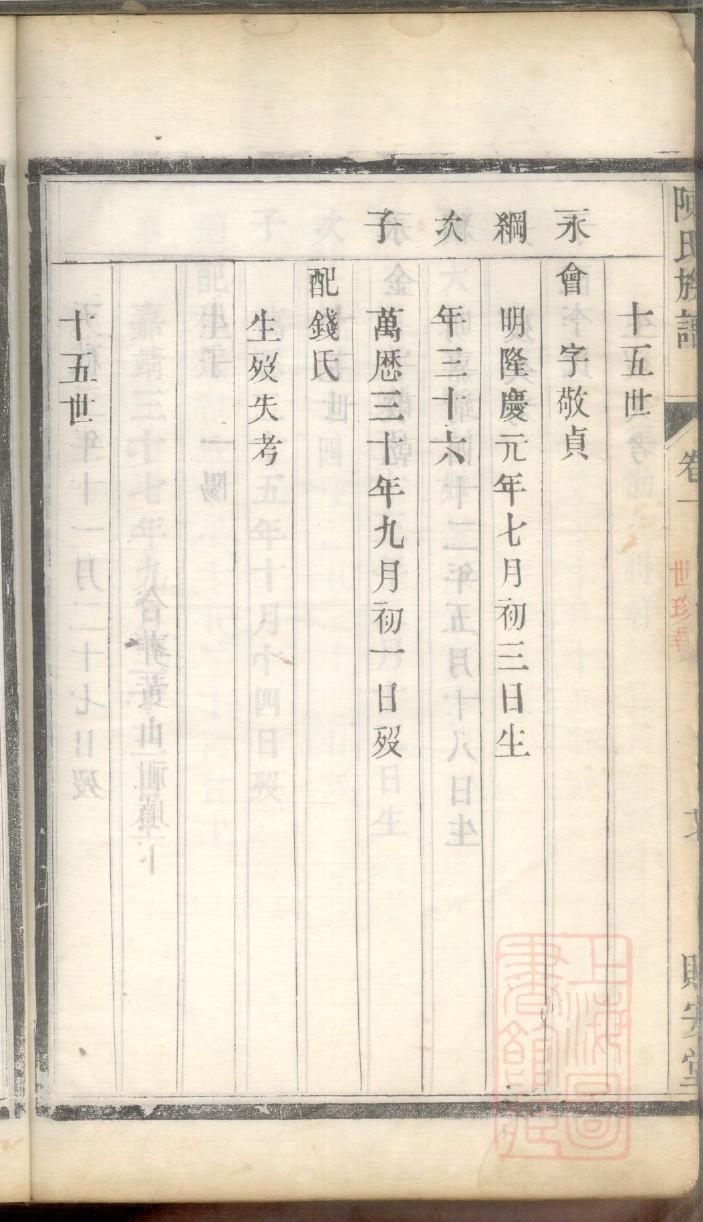 陳氏族譜
卷一
世珍
十五世
永綱次子
會字敬貞
明隆慶元年七月初三日生
年三十六
萬歷三十年九月初一日歿
配錢氏
生歿失考
十五世
上海圖書館藏